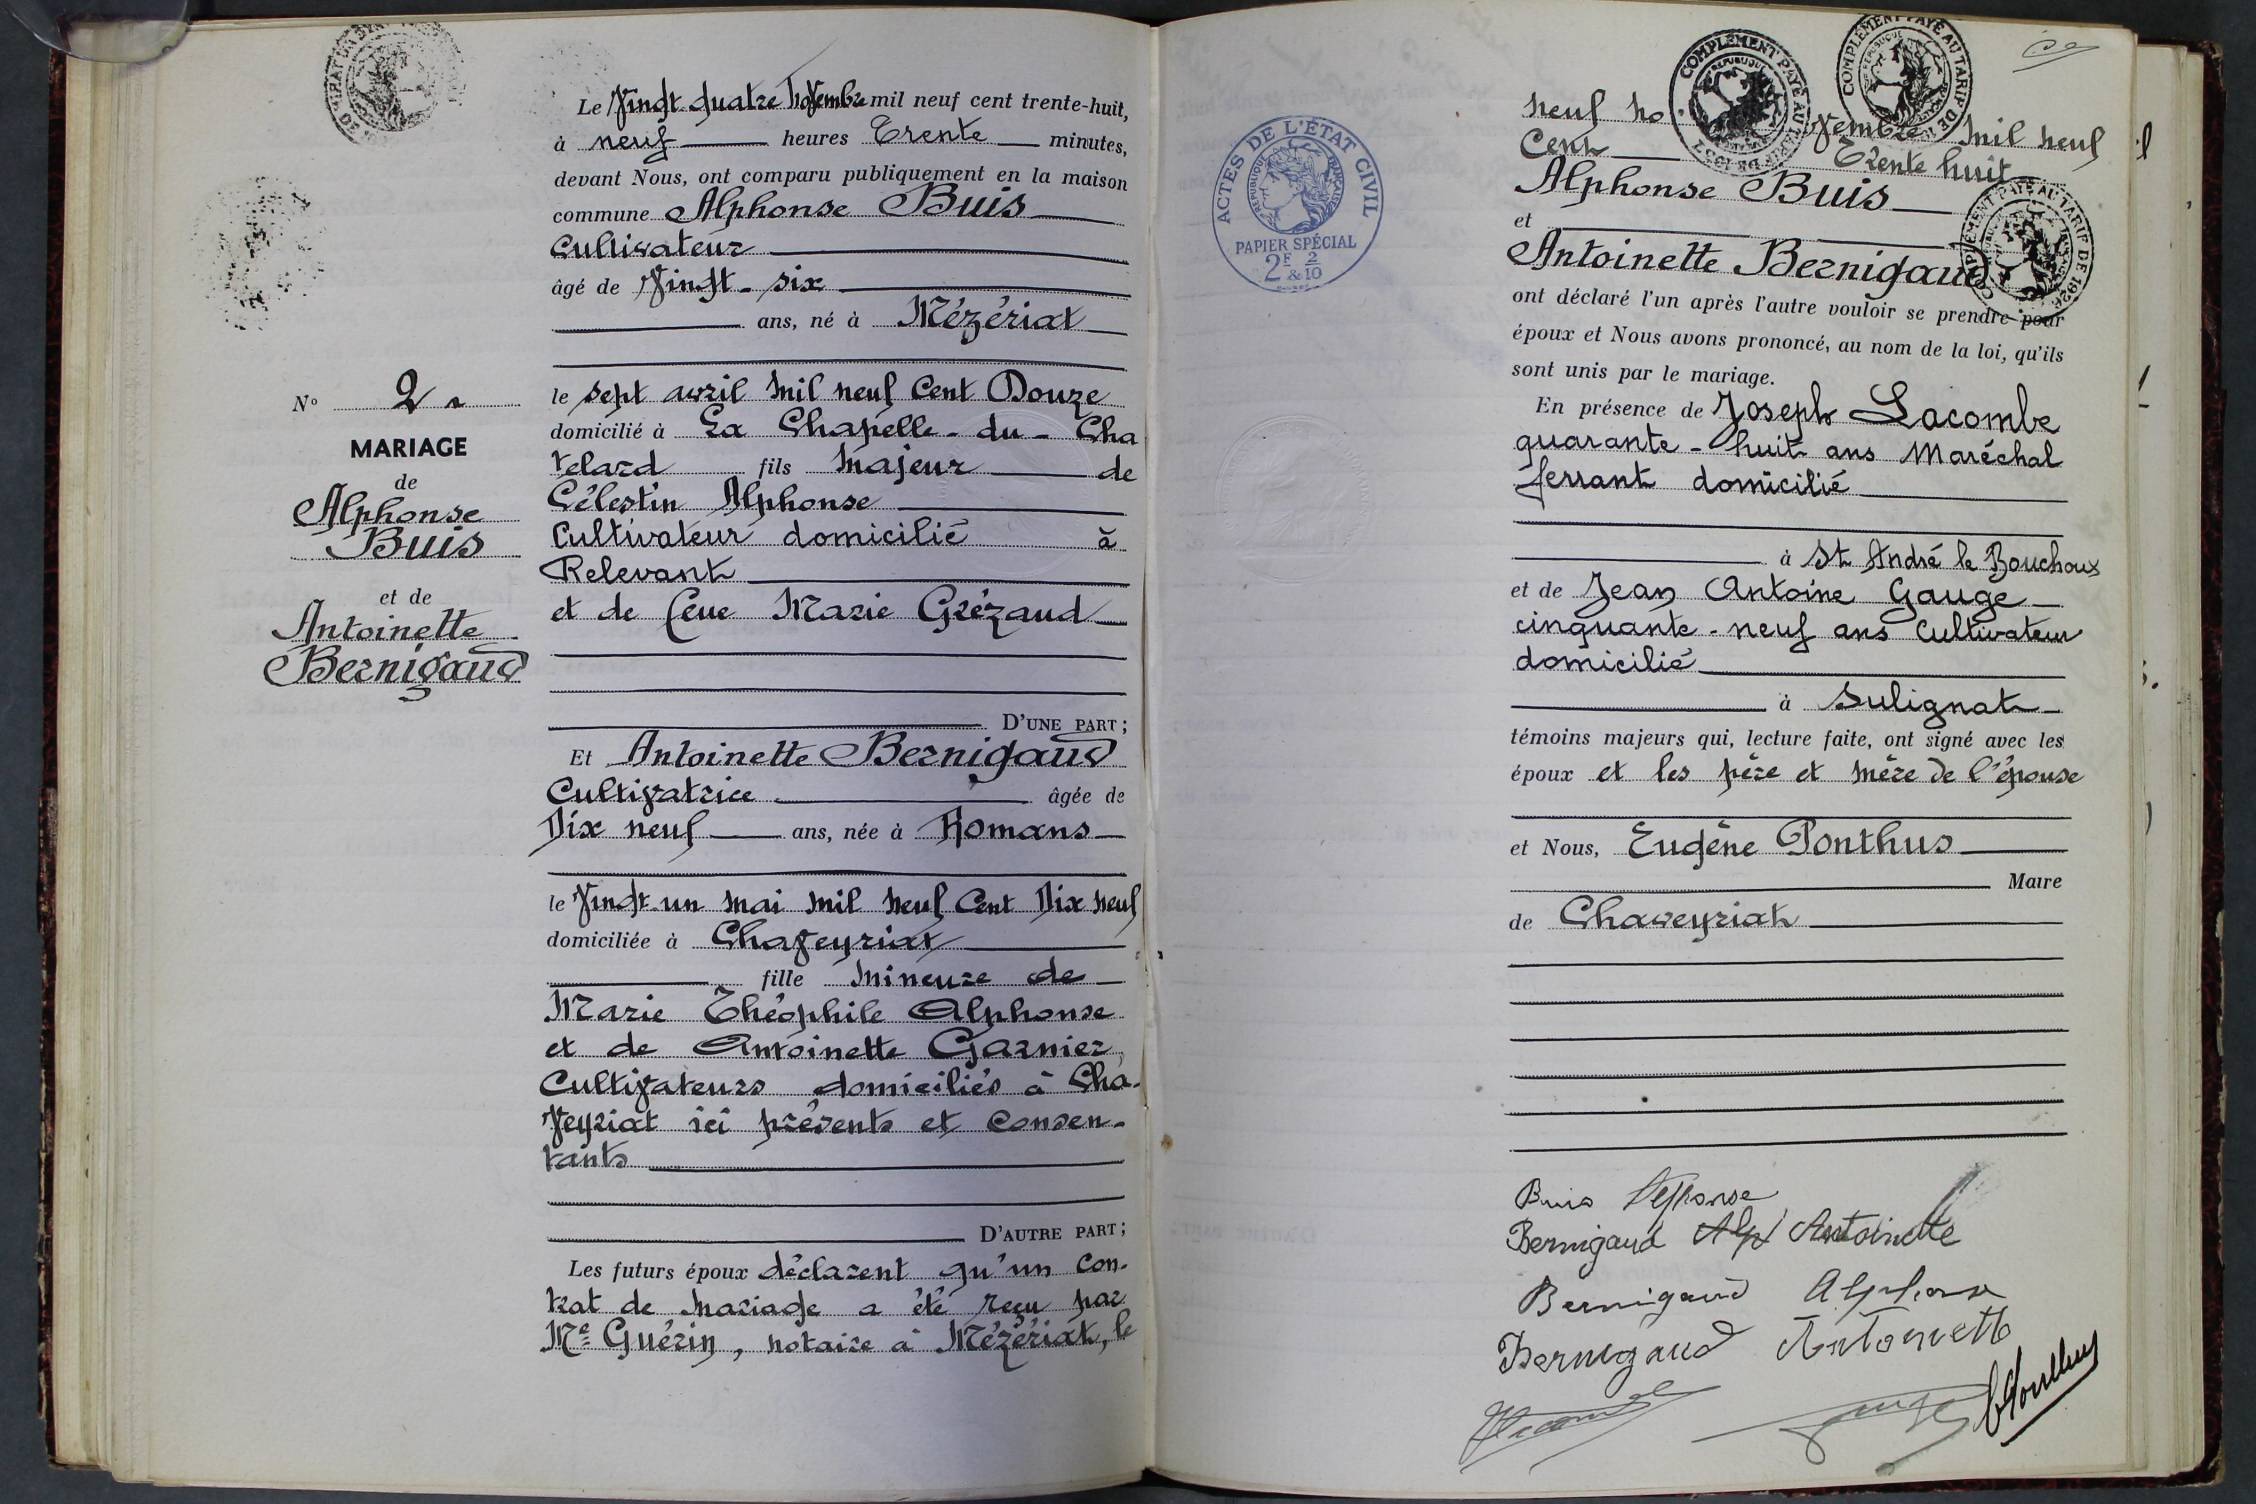 Le Vingt quatre Novembre mil neuf cent trente-huit,
à neuf heures Trente minutes,
devant Nous, ont comparu publiquement en la maison
commune Alphonse Buis
Cultivateur
âgé de Vingt-six
ans, né à Mézériat
le sept avril mil neuf Cent Douze
domicilié à La Chapelle-du-Cha
telard fils Majeur de
Célestin Alphonse
Cultivateur domicilié à
Relevant
et de feue Marie Grézaud
D'UNE PART;
Et Antoinette Bernigaud
Cultivatrice âgée de
Dix neuf ans, née à Romans
le Vingt-un mai mil neuf Cent Dix neuf
domiciliée à Chaveyriat
fille Mineure de
Marie Théophile Alphonse
et de Antoinette Garnier,
Cultivateurs domiciliés à Cha-
veyriat ici présents et consen-
tants
D'AUTRE PART;
Les futurs époux déclarent qu'un con-
trat de mariage a été reçu par
Me Guérin, notaire à Mézériat, le
No 2
MARIAGE
de
Alphonse
Buis
et de
Antoinette
Bernigaud
ACTES DE L'ÉTAT CIVIL
RÉPUBLIQUE FRANÇAISE
PAPIER SPÉCIAL
2F & 2/10
COMPLÉMENT PAYÉ AU TARIF DE
COMPLÉMENT PAYÉ AU TARIF DE
COMPLÉMENT PAYÉ AU TARIF DE 1926
neuf no vembre mil neuf
Cent Trente huit
Alphonse Buis
et
Antoinette Bernigaud
ont déclaré l'un après l'autre vouloir se prendre pour
époux et Nous avons prononcé, au nom de la loi, qu'ils
sont unis par le mariage.
En présence de Joseph Lacombe
quarante-huit ans Maréchal
ferrant domicilié
à St André le Bouchoux
et de Jean Antoine Gauge
cinquante-neuf ans Cultivateur
domicilié
à Sulignat
témoins majeurs qui, lecture faite, ont signé avec les
époux et les père et mère de l'épouse
et Nous, Eugène Ponthus
Maire
de Chaveyriat
Buis Alphonse
Bernigaud Alp Antoinette
Bernigaud Alphonse
Bernigaud Antoinette